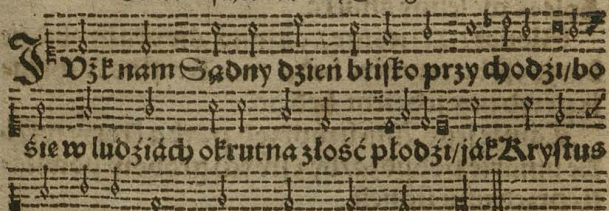 JVżk nam Sądny dzień blisko przychodźi/bo
śie w ludźiách okrutna złość płodźi/ják Krystus